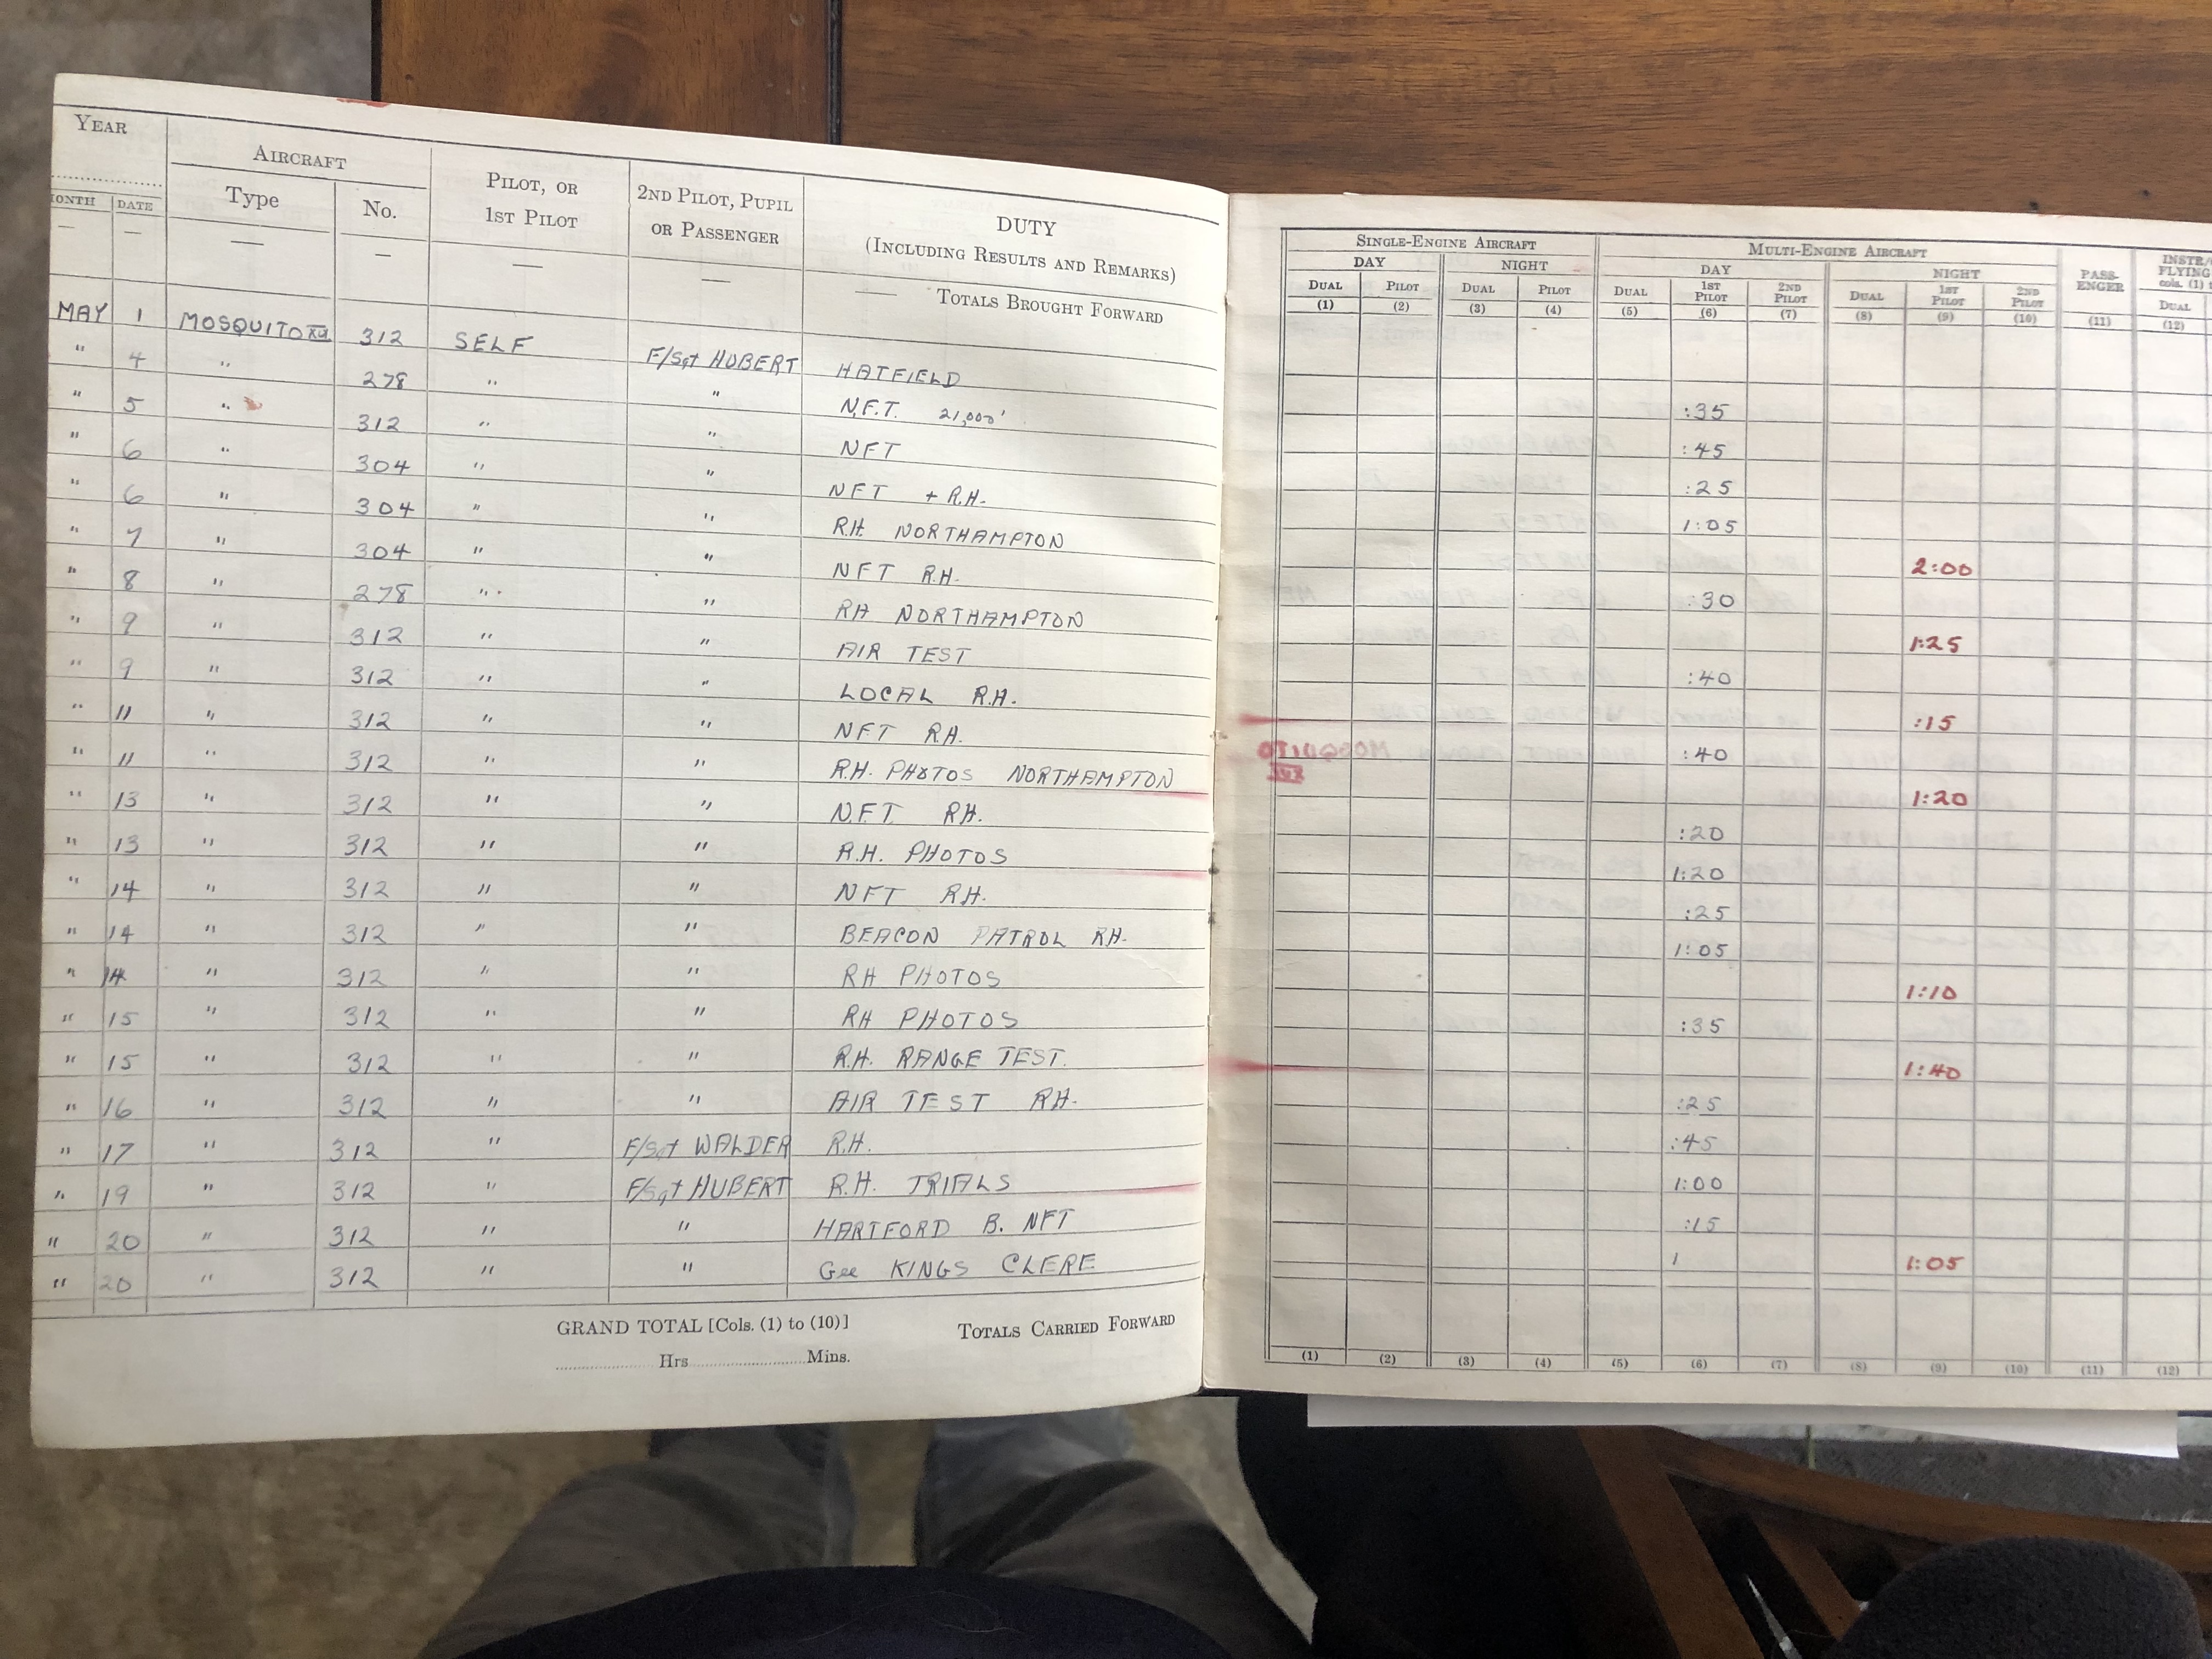 YEAR
AIRCRAFT
PILOT, OR
1ST PILOT
2ND PILOT, PUPIL
OR PASSENGER
DUTY
(INCLUDING RESULTS AND REMARKS)
MONTH DATE Type No.
TOTALS BROUGHT FORWARD
MAY 1 MOSQUITO XVI 312 SELF F/Sgt HUBERT HATFIELD
" 4 " 278 " " N.F.T. 21,000'
" 5 " 312 " " NFT
" 6 " 304 " " NFT + R.H.
" 6 " 304 " " R.H. NORTHAMPTON
" 7 " 304 " " NFT R.H.
" 8 " 278 " " RH NORTHAMPTON
" 9 " 312 " " AIR TEST
" 9 " 312 " " LOCAL R.H.
" 11 " 312 " " NFT R.H.
" 11 " 312 " " R.H. PHOTOS NORTHAMPTON
" 13 " 312 " " N.F.T. RH.
" 13 " 312 " " R.H. PHOTOS
" 14 " 312 " " NFT RH.
" 14 " 312 " " BEACON PATROL RH.
" 14 " 312 " " RH PHOTOS
" 15 " 312 " " RH PHOTOS
" 15 " 312 " " R.H. RANGE TEST.
" 16 " 312 " " AIR TEST RH.
" 17 " 312 " F/Sgt WALDER R.H.
" 19 " 312 " F/Sgt HUBERT R.H. TRIALS
" 20 " 312 " " HARTFORD B. NFT
" 20 " 312 " " Gee KINGS CLERE
GRAND TOTAL [Cols. (1) to (10)]
Hrs Mins.
TOTALS CARRIED FORWARD
SINGLE-ENGINE AIRCRAFT MULTI-ENGINE AIRCRAFT
DAY NIGHT DAY NIGHT PASS-ENGER
FLYING
DUAL PILOT DUAL PILOT DUAL 1ST PILOT 2ND PILOT DUAL 1ST PILOT 2ND PILOT DUAL
(1) (2) (3) (4) (5) (6) (7) (8) (9) (10) (11) (12)
:35
:45
:25
1:05
2:00
:30
1:25
:40
:15
:40
1:20
:20
1:20
:25
1:05
1:10
:35
1:40
:25
:45
1:00
:15
1:05
(1) (2) (3) (4) (5) (6) (7) (8) (9) (10) (11) (12)